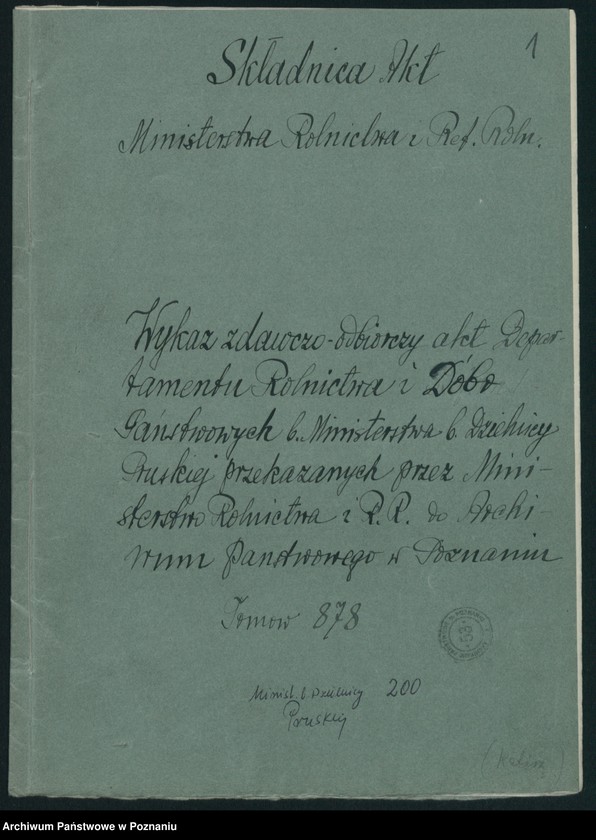 1
Składnica Akt
Ministerstwa Rolnictwa i Ref. Roln.
Wykaz zdawczo-odbiorczy akt Depar-
tamentu Rolnictwa i Dóbr
Państwowych b. Ministerstwa b. Dzielnicy
Pruskiej przekazanych przez Mini-
sterstwo Rolnictwa i R. R. do Archi-
wum Państwowego w Poznaniu
Tomów 878
Minist. b. Dzielnicy 200
Pruskiej
Archiwum Państwowe w Poznaniu